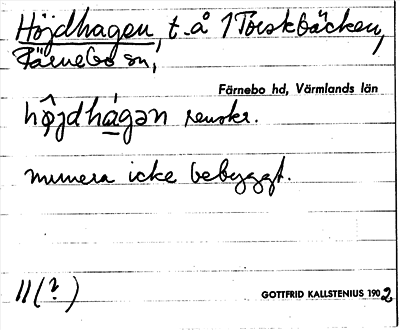 Höjdhagen, t. å 1 Torskbäcken,
Färnebo sn,
Färnebo hd, Värmlands län
hö̂jdhágən renskr.
numera icke bebyggt.
11(?)
GOTTFRID KALLSTENIUS 1902